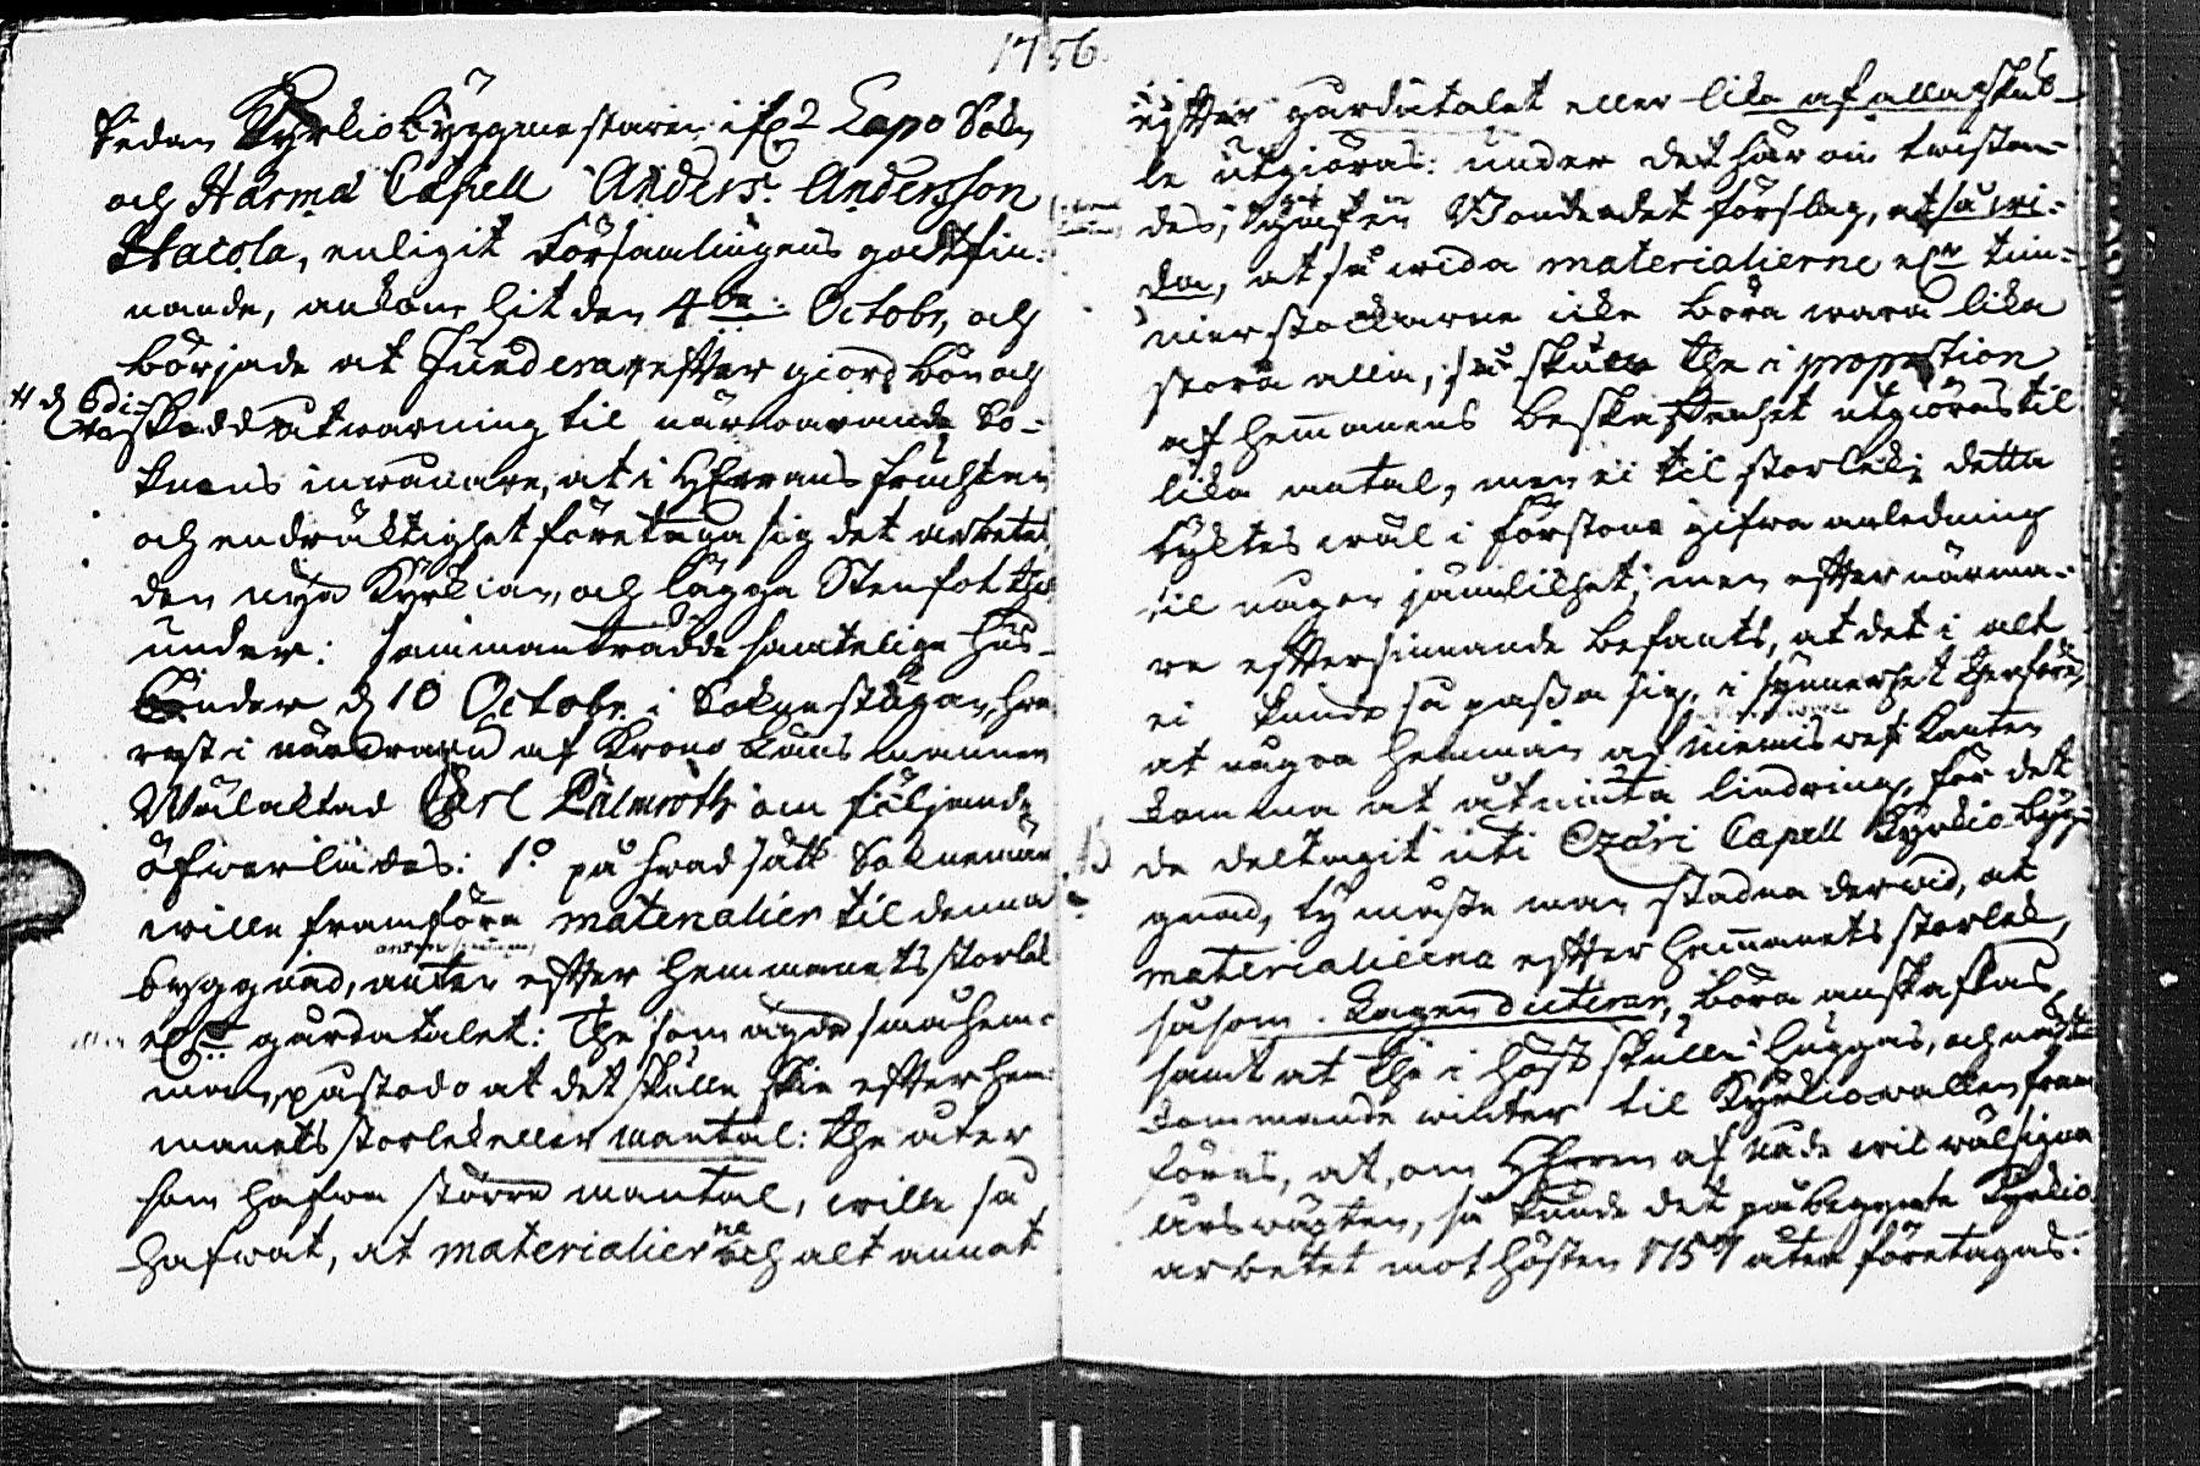 1756.
Sedan Kyrkiobyggmestaren ifr. Lapo Sokn
och Härmä Capell Anders Andersson
Hacola, enligit församlingens godtfin-
nande, ankom hit den 4de Octobr, och
började at fundera efter giord bön och
skedd åtwarning til närwarande So-
knens inwånare, at i HErrans fruchtan
och endräktighet företaga sig det arbetet
den nya Kyrkian, och lägga Stenfot ther
under: sammanträdde samtelige hus-
bönder d 10 Octobr. i Soknestugan, hwa-
rest i närwaru af Krono Länsmannen
Wälaktad Carl Palmroth om följande
öfwerlades: 1o på hwad sätt Sokneman
wille framföra materialier til denna
byggnad, antingen efter hemmanets storlek
eller gårdatalet: The som ägde små hem-
man, påstodo at det skulle skie efter hem-
manets storlek eller mantal: the åter
som hafwa större mantal, wille så
hafwat, at materialierna och alt annat
efter gårdatalet eller lika af alla skul-
le utgiöras: under det här om twista-
des, Wondeadet förslag, at så wi-
da, at så wida materialierne eller tim-
merstockarne icke böra wara lika
stora alla, så skulle the i proportion
af hemmanens beskaffenhet utgiöras til
lika antal, men ei til storlek; detta
tyktes wäl i förstone gifwa anledning
til någon jämlikhet; men efter närma-
re eftersinnande befants, at det i alt
ei kunde så passa sig, i synnerhet therföre,
at några hemman af Niemis west kanten
komma at åtniuta lindring, för det
de deltagit uti Ezäri Capell Kyrkio byg-
gnad, ty måste man stadna derwid, at
materialierna efter hemmanets storlek,
såsom Lagen dicterar, böra anskaffas,
samt at the i höst skulle huggas, och nästk
kommande winter til Kyrkiowallen fram
föras, at, om HErren af nåde wil wälsigna
årswäxten, så kunde det påbegynte Kyrkio
arbetet mot hösten 1757 åter företagas.